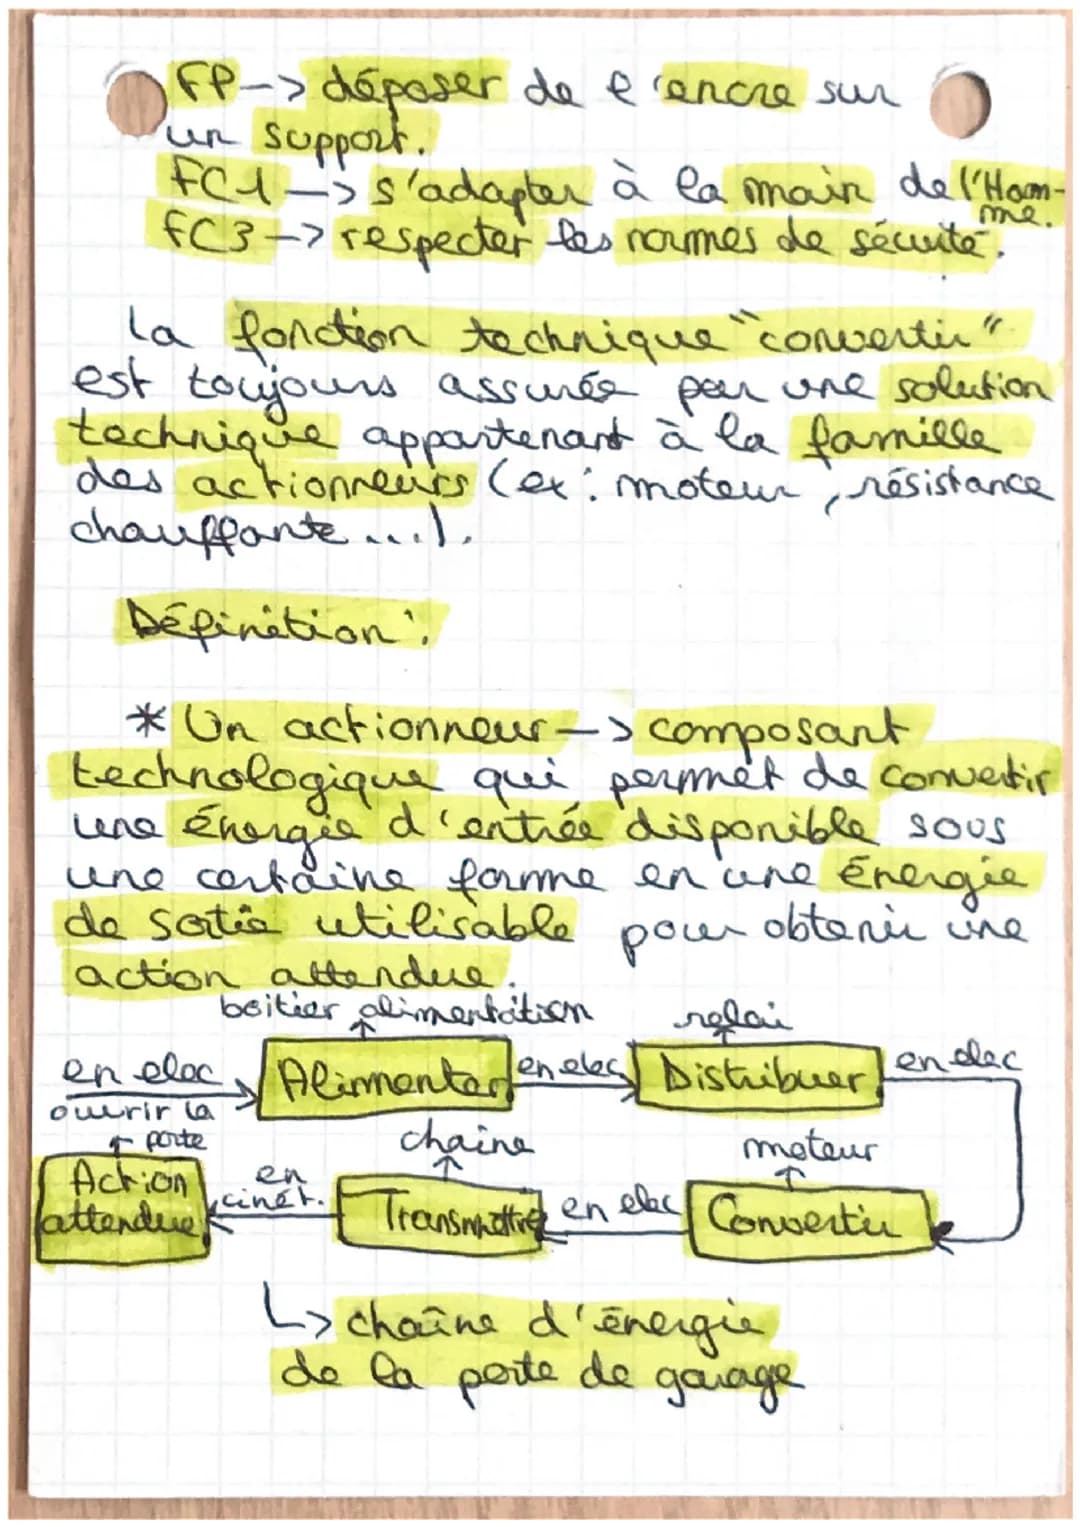 FP-> déposer de l'encre sur
un support.
FC1-> s'adapter à la main de l'Hom-
me.
FC3-> respecter les normes de sécurité.
La fonction technique "convertir"
est toujours assurée par une solution
technique appartenant à la famille
des actionneurs (ex: moteur, résistance
chauffante...).
Définition:
* Un actionneur-> composant
technologique qui permet de convertir
une énergie d'entrée disponible sous
une certaine forme en une énergie
de sortie utilisable pour obtenir une
action attendue.
boitier alimentation relai
en elec Alimenter en elec Distribuer en elec
ouvrir la
porte chaine moteur
Action
attendue en
cinét. Transmettre en elec Convertir
↳ chaîne d'énergie
de la porte de garage